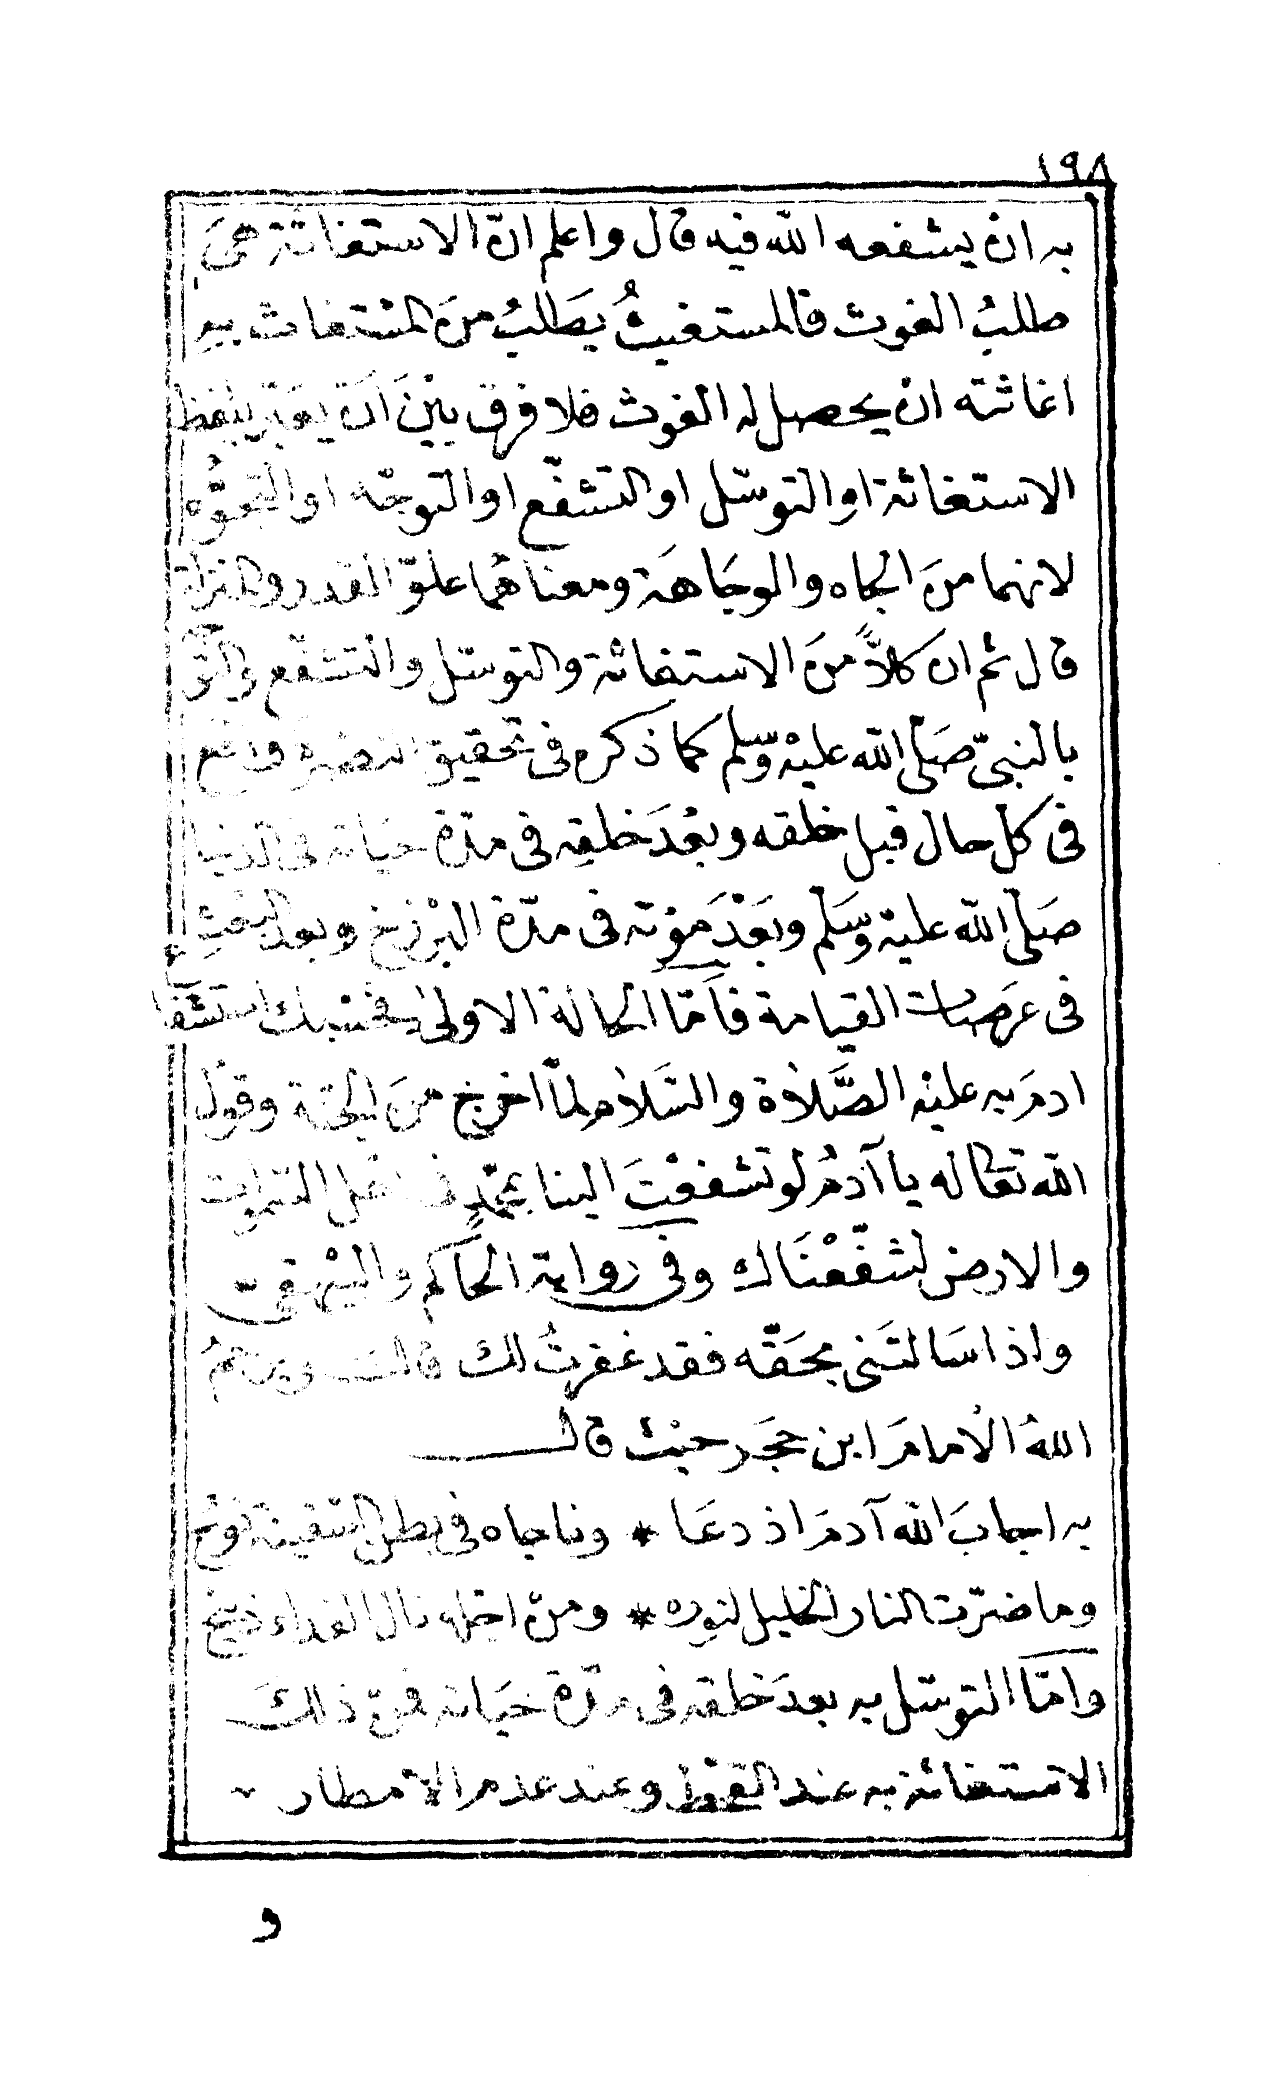 ١٩٨
به ان يشفعه الله فيه قال واعلم انّ الاستغاثة هىَ
طلبُ الغوث فالمستغيثُ يَطلبُ منَ المسْتغاث به
اغاثته ان يحصل له الغوث فلا فرق بيْن اَن يعبّر بلفظ
الاستغاثة اوِ التوسّل او التشفّع او التوجّه او التجوُّه
لانهما منَ الجاه والوجَاهَة ومعناهُما علوّ القدر والمنزلة
قال ثم ان كلاًّ منَ الاستغاثة والتوسّل والتشفّع والتّو
بالنبىّ صَلّى الله عليْه وسّلم كما ذكره فى تحقيق النصْرة واقع
فى كل حال قبل خلقه وبعْدَ خلقه فى مدّة حيَاته فى الدنيا
صَلّى الله عليْه وسَلّم وبَعْدَ مَوْته فى مدّة البرْزخ وبعد البعْث
فى عرَصات القيامة فاَمّا الحالة الاولىٰ فحسْبك استشفا
ادمَ به عليْه الصَّلاة والسَلام لمّا اخرج منَ الجنّة وقول
الله تعالى له يا آدمُ لو تشفعْتَ الينا بمحمّدٍ فى اهل السّموات
والارض لشفّعْنَاك وفى رواية الحاكم والبيْهقى
واذ اسَالتَنى بحَقّه فقد غفرتُ لك قالت ويرحمُ
اللهُ الاُمامَ ابن حجَر حيْث قال
به اجابَ الله آدمَ اذ دعَا * وناجاه فى بطن السّفينة نوْح
وما ضرّت النار الخليل لنوره * ومنْ اجْله نال الفداء ذبيح
وامّا التوسّل به بعدَ خلقه فى مدّة حيَاته فمنْ ذلكَ
الاستغاثة به عند القحْط وعند عدم الامطار
و